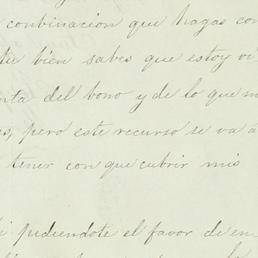 combinacion que hagas con
tu bien sabes que estoy vi
nta del bono y de lo que m
s, pero este recurso se va á
tener con que cubrir mis
i pudiendote el favor de en